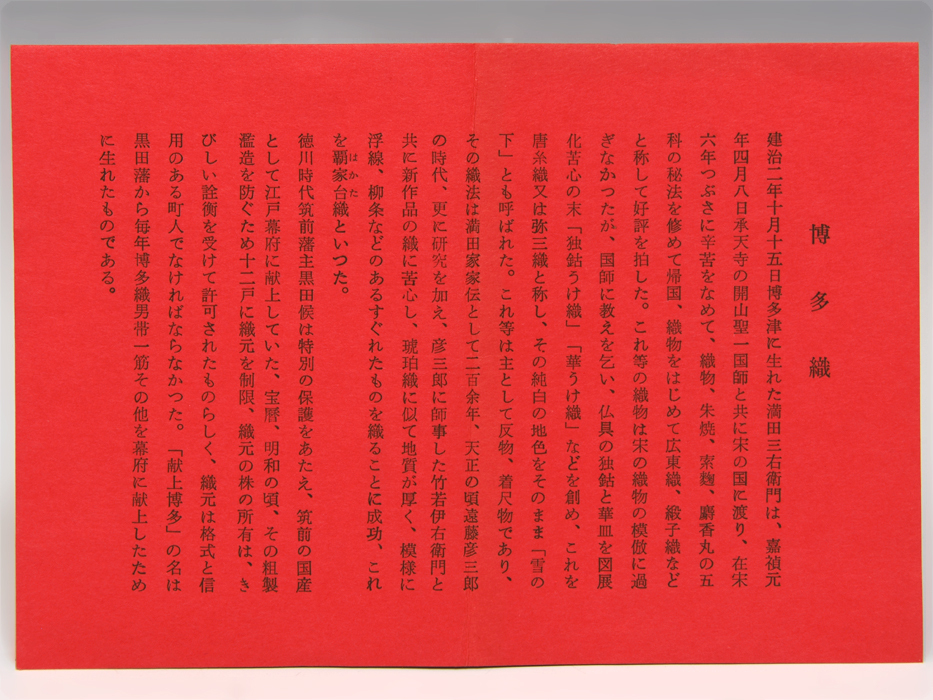 博多織
建治二年十月十五日博多津に生れた満田三右衛門は、嘉禎元
年四月八日承天寺の開山聖一国師と共に宋の国に渡り、在宋
六年つぶさに辛苦をなめて、織物、朱焼、索麵、麝香丸の五
科の秘法を修めて帰国、織物をはじめて広東織、緞子織など
と称して好評を拍した。これ等の織物は宋の織物の模倣に過
ぎなかつたが、国師に教えを乞い、仏具の独鈷と華皿を図展
化苦心の末「独鈷うけ織」「華うけ織」などを創め、これを
唐糸織又は弥三織と称し、その純白の地色をそのまま「雪の
下」とも呼ばれた。これ等は主として反物、着尺物であり、
その織法は満田家家伝として二百余年、天正の頃遠藤彦三郎
の時代、更に研究を加え、彦三郎に師事した竹若伊右衛門と
共に新作品の織に苦心し、琥珀織に似て地質が厚く、模様に
浮線、柳条などのあるすぐれたものを織ることに成功、これ
を覇家台織といつた。
はかた
徳川時代筑前藩主黒田候は特別の保護をあたえ、筑前の国産
として江戸幕府に献上していた、宝暦、明和の頃、その粗製
濫造を防ぐため十二戸に織元を制限、織元の株の所有は、き
びしい詮衡を受けて許可されたものらしく、織元は格式と信
用のある町人でなければならなかつた。「献上博多」の名は
黒田藩から毎年博多織男帯一筋その他を幕府に献上したため
に生れたものである。